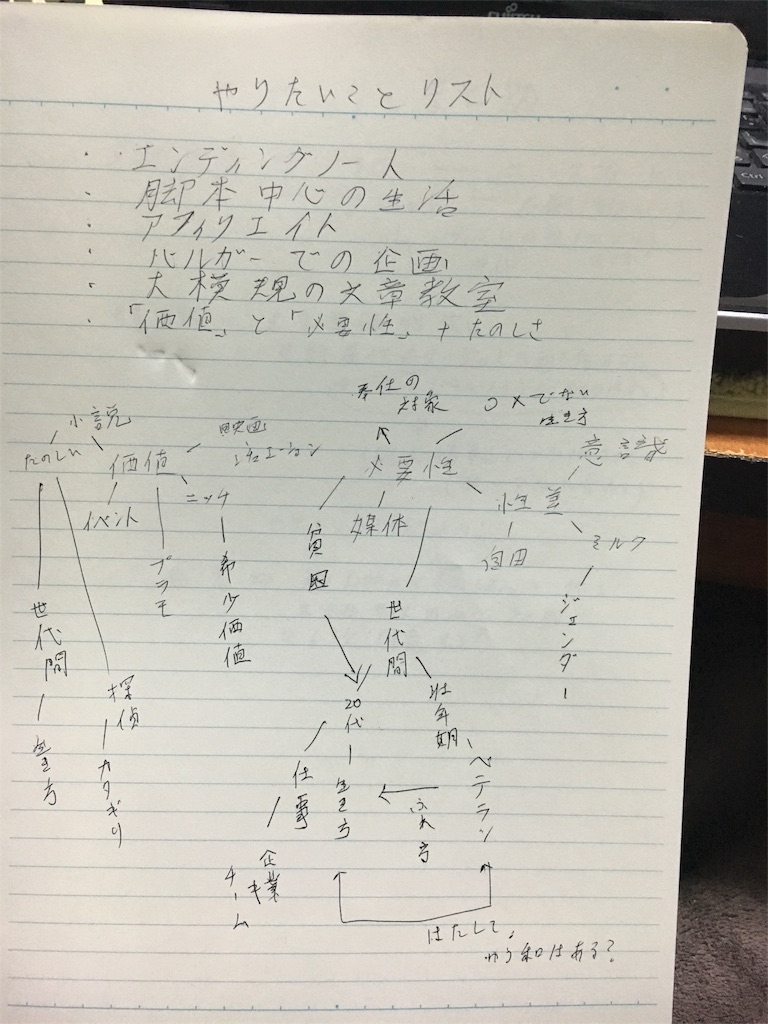 FUJITSU
Ctrl
やりたいことリスト
・エンディングノート
・脚本中心の生活
・アフィリエイト
・バルガーでの企画
・大規模の文章教室
・「価値」と「必要性」+たのしさ
小説
たのしい
価値
映画
イベント
プラモ
ニッチ
希少価値
世代間
生き方
探偵
カタギリ
奉仕の
対象
○×でない
生き方
必要性
意識
性差
自由
ミルク
ジェンダー
媒体
貧困
世代間
20代
生き方
壮年期
ベテラン
仕事
企業
チーム
はたして、
はある?